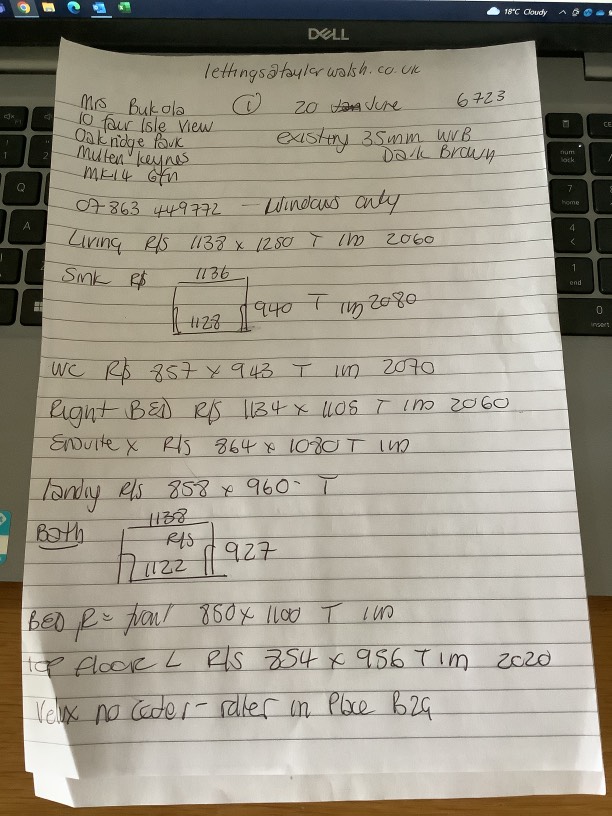 18°C Cloudy
DELL
lettings@taylorwalsh.co.uk
Mrs Bukola ① 20 June 6723
10 fair Isle View
Oakridge Park existing 35mm WVB
Milten Keynes Dark Brown
MK14 6fn
07863 449772 - Windows only
Living R/S 1138 x 1250 T 1m 2060
Sink R/S 1136
1128 940 T 1m 2080
WC R/S 857 x 943 T 1m 2070
Right BED R/S 1134 x 1105 T 1m 2060
Ensuite x R/S 864 x 1080 T 1m
landiy R/S 858 x 960 - T
Bath 1138
R/S
1122 927
BED R = front 850 x 1100 T 1m
top floor L R/S 854 x 956 T 1m 2020
Velux no - in Place